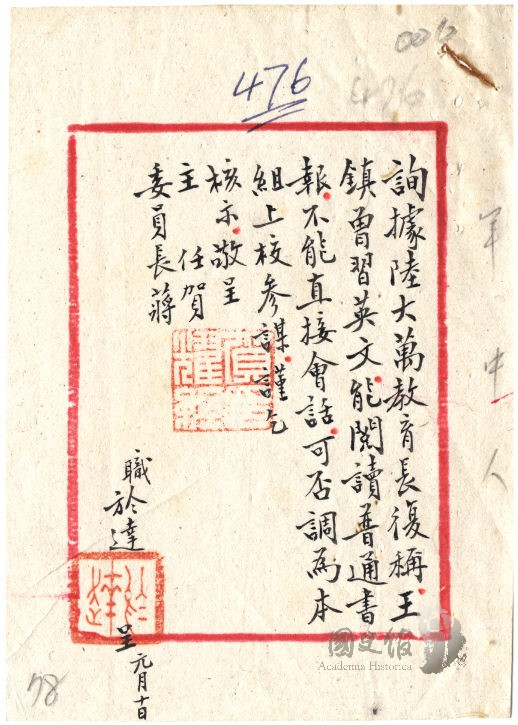 006
476
476
詢據陸大萬教育長復稱王
鎮曾習英文能閱讀普通書
報不能直接會話可否調為本
組上校參謀謹乞
核示敬呈
主任賀
委員長蔣
職於達
呈
元月十日
78
國史館
Academia Historica